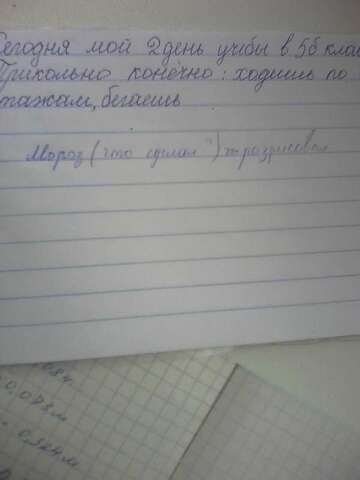 Сегодня мой 2 день учёбы в 5б клас
Прикольно конечно: ходишь по
этажам, бегаешь
Мороз (что сделал?) разрисовал
0.084
0.073м
0.324м